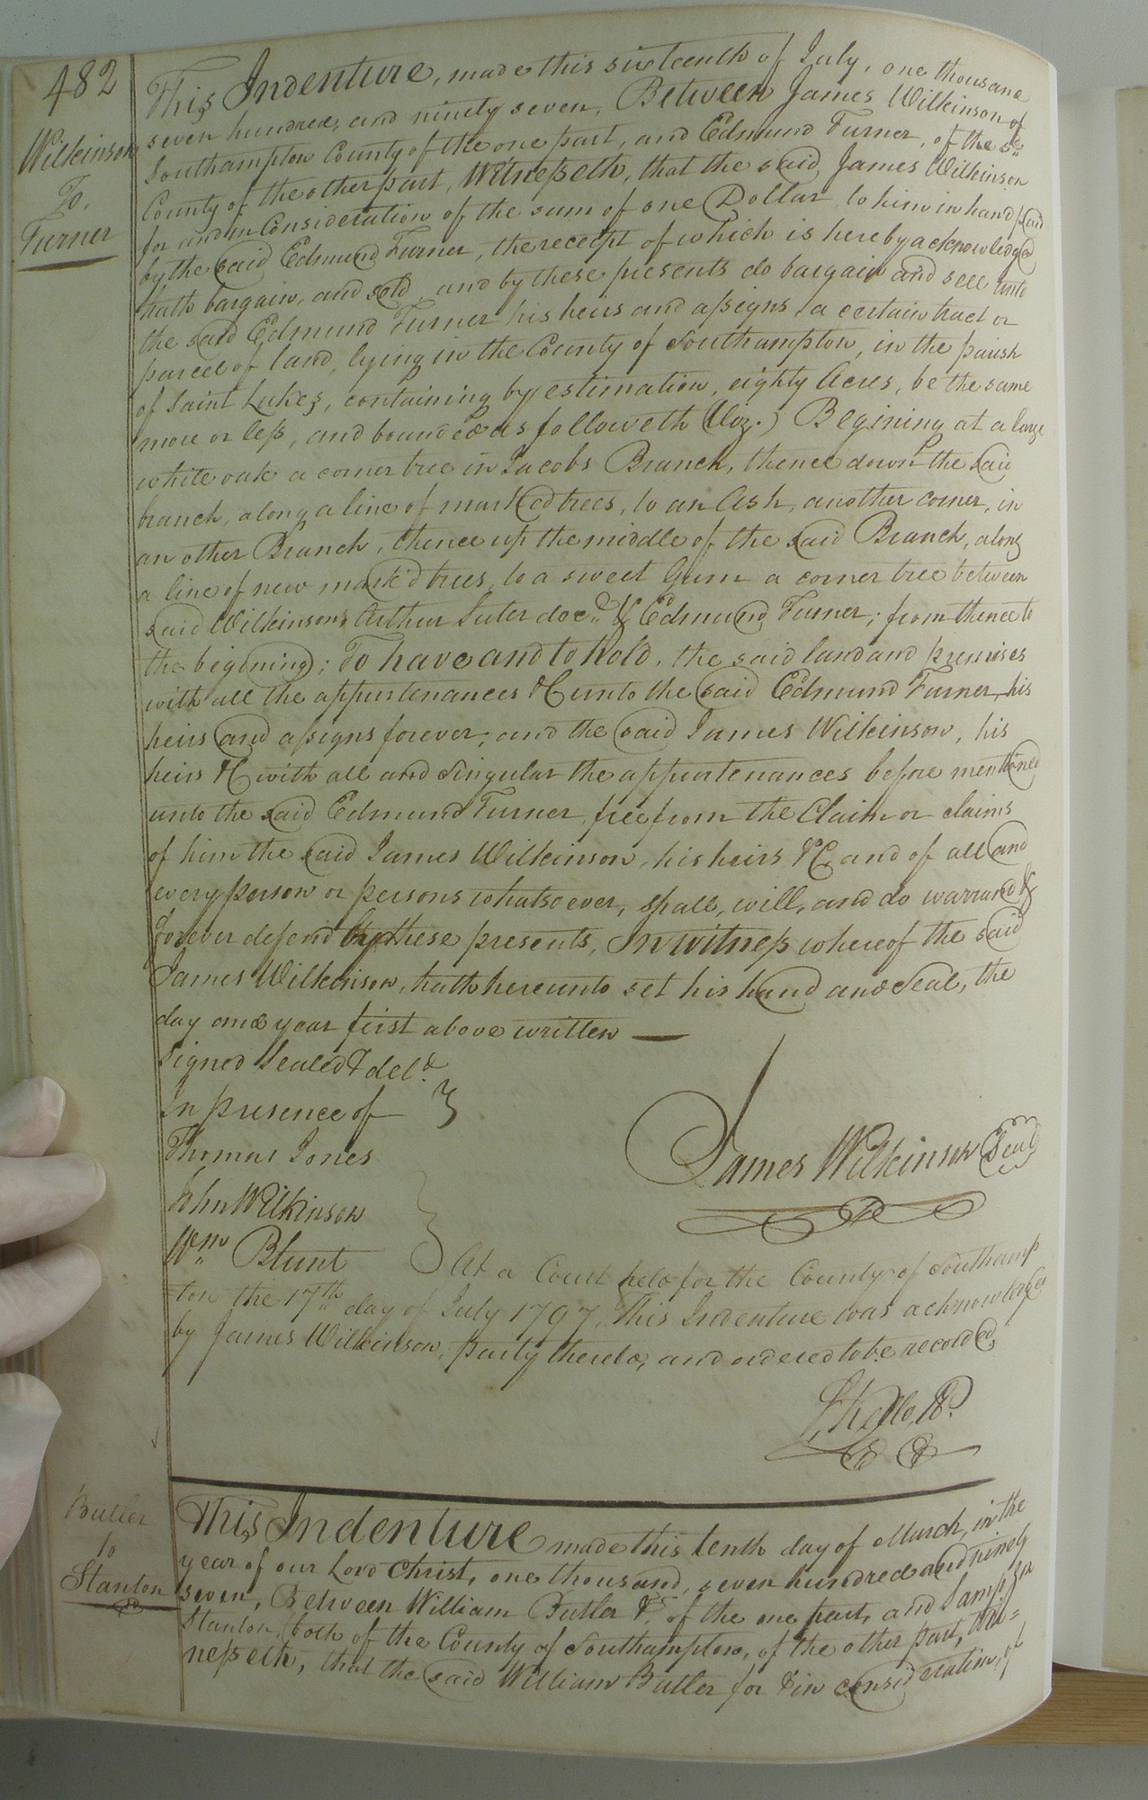 482
Wilkinson
To.
Turner
This Indenture, made this sixteenth of July, one thousand
seven hundred, and ninety seven, Between James Wilkinson of
Southampton County of the one part, and Edmund Turner, of the sd.
County of the other part, Witnesseth, that the said, James Wilkinson
for and in Consideration of the sum of one Dollar to him in hand paid
by the said Edmund Turner, the receipt of which is hereby acknowledged
hath bargain, and sold and by these presents do bargain and sell unto
the said Edmund Turner his heirs and assigns a certain tract or
parcel of land, lying in the County of Southampton, in the parish
of Saint Lukes, containing by estimation, eighty Acres, be the same
more or less, and bounded as followeth (Viz.) Begining at a large
white oak a corner tree in Jacobs Branch, thence down the said
branch, along a line of marked trees, to an Ash, another corner, in
an other Branch, thence up the middle of the said Branch, along
a line of new mark'd trees, to a sweet Gum a corner tree between
said Wilkinson, Arthur Suter decd. & Edmund Turner; from thence to
the begining; To have and to hold, the said land and premises
with all the appurtenances &C unto the said Edmund Turner, his
heirs and assigns forever; and the said James Wilkinson, his
heirs &C with all and singular the appurtenances before mentioned
unto the said Edmund Turner, free from the Claim or claims
of him the said James Wilkinson, his heirs &C, and of all and
every person or persons whatsoever, shall, will, and do warrant &
forever defend by these presents, In witness whereof the said
James Wilkinson, hath hereunto set his hand and Seal, the
day and year first above written —
Signed Sealed & deld.
in presence of
Thomas Jones
John Wilkinson
Wm Blunt
James Wilkinson Seal
At a Court held for the County of Southamp
ton the 17th day of July 1797, This Indenture was acknowledged
by James Wilkinson, party thereto, and ordered to be recorded,
Butler
to
Stanton
This Indenture made this tenth day of March, in the
year of our Lord Christ, one thousand, seven hundred and ninety
seven, Between William Butler of the one part, and Sampson
Stanton, both of the County of Southampton, of the other part, Wit=
nesseth, that the said William Butler for & in consideration, of